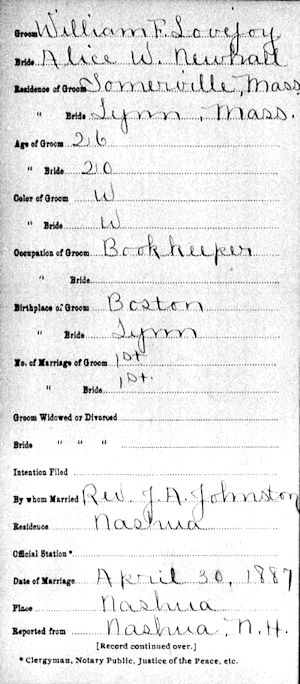 Groom William F. Lovejoy
Bride Alice W. Newhall
Residence of Groom Somerville, Mass
" Bride Lynn, Mass.
Age of Groom 26
" Bride 20
Color of Groom W
" Bride W
Occupation of Groom Bookkeeper
" Bride
Birthplace of Groom Boston
" Bride Lynn
No. of Marriage of Groom 1st
" Bride 1st.
Groom Widowed or Divorced
Bride " " "
Intention Filed
By whom Married Rev. J. A. Johnston
Residence Nashua
Official Station*
Date of Marriage April 30, 1887
Place Nashua
Reported from Nashua, N.H.
[Record continued over.]
* Clergyman, Notary Public, Justice of the Peace, etc.